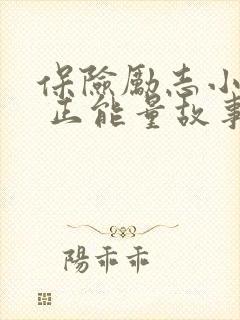 保險勵志小
正能量故事
陽乖乖